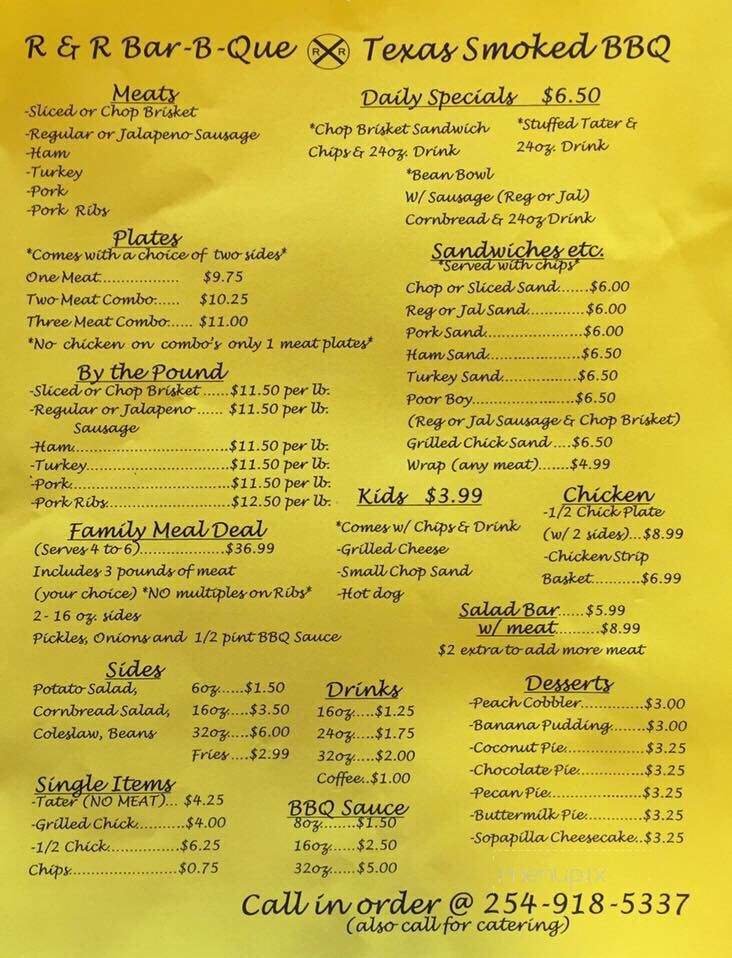 R & R Bar-B-Que R R Texas Smoked BBQ
Meats
-Sliced or Chop Brisket
-Regular or Jalapeno Sausage
-Ham
-Turkey
-Pork
-Pork Ribs
Daily Specials $6.50
*Chop Brisket Sandwich
Chips & 24oz. Drink
*Stuffed Tater &
24oz. Drink
*Bean Bowl
W/ Sausage (Reg or Jal)
Cornbread & 24oz Drink
Plates
*Comes with a choice of two sides*
One Meat.................. $9.75
Two Meat Combo...... $10.25
Three Meat Combo..... $11.00
*No chicken on combo's only 1 meat plates*
Sandwiches etc.
*Served with chips*
Chop or Sliced Sand.......$6.00
Reg or Jal Sand.............$6.00
Pork Sand.....................$6.00
Ham Sand....................$6.50
Turkey Sand.................$6.50
Poor Boy......................$6.50
(Reg or Jal Sausage & Chop Brisket)
Grilled Chick Sand ....$6.50
Wrap (any meat).......$4.99
By the Pound
-Sliced or Chop Brisket ......$11.50 per lb.
-Regular or Jalapeno...... $11.50 per lb.
Sausage
-Ham...................................$11.50 per lb.
-Turkey................................$11.50 per lb.
-Pork....................................$11.50 per lb.
-Pork Ribs............................$12.50 per lb.
Kids $3.99
*Comes w/ Chips & Drink
-Grilled Cheese
-Small Chop Sand
-Hot dog
Chicken
-1/2 Chick Plate
(w/ 2 sides)...$8.99
-Chicken Strip
Basket...........$6.99
Family Meal Deal
(Serves 4 to 6)...................$36.99
Includes 3 pounds of meat
(your choice) *NO multiples on Ribs*
2- 16 oz. sides
Pickles, Onions and 1/2 pint BBQ Sauce
Salad Bar......$5.99
w/ meat..........$8.99
$2 extra to add more meat
Sides
Potato Salad, 6oz......$1.50
Cornbread Salad, 16oz....$3.50
Coleslaw, Beans 32oz....$6.00
Fries ....$2.99
Drinks
16oz....$1.25
24oz....$1.75
32oz....$2.00
Coffee..$1.00
Desserts
-Peach Cobbler............$3.00
-Banana Pudding........$3.00
-Coconut Pie..................$3.25
-Chocolate Pie...............$3.25
-Pecan Pie.....................$3.25
-Buttermilk Pie.............$3.25
-Sopapilla Cheesecake..$3.25
Single Items
-Tater (NO MEAT)... $4.25
-Grilled Chick...........$4.00
-1/2 Chick.................$6.25
Chips..........................$0.75
BBQ Sauce
8oz........$1.50
16oz......$2.50
32oz......$5.00
menupix
Call in order @ 254-918-5337
(also call for catering)